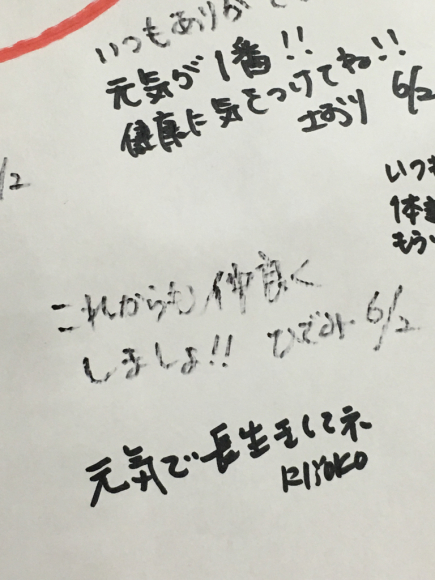 いつもありがと
元気が1番!!
健康に気をつけてね!!
6/2
いつも
1本
もう
/2
これからも仲良く
しましょ!! ひでみ 6/2
元気で長生きしてネ
KIYOKO